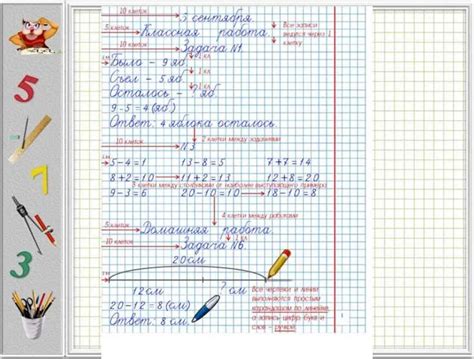 10 клеток 3 сентября.
5 клеток Классная работа. Все записи
10 клеток Задача №1. ведутся через 1
клетку
1 кл Было – 9 яб. 1 кл
Съел – 5 яб. 1 кл
Осталось – ? яб.
9-5=4(яб.)
Ответ: 4 яблока осталось.
2 клетки между заданиями
10 клеток №3
5-4=1 13-8=5 7+7=14
8+2=10 11+2=13 12+8=20
3 клетки между столбиками от наиболее выступающего примера
9-3=6 20-10=10 18-10=8
4 клетки между работами
5 клеток Домашняя работа.
10 клеток Задача №6. 1 кл
20см
12см ?см
Все чертежи и линии
выполняются простым
20-12=8(см) карандашом по линейке,
а запись цифр, букв и
Ответ: 8см. слов – ручкой.
5
7
3